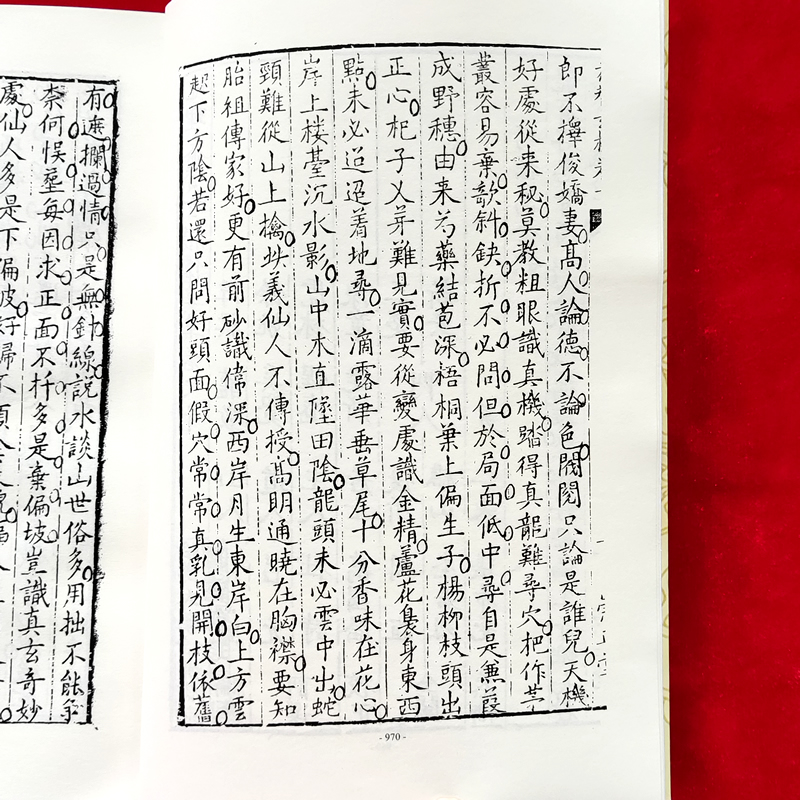 郎不擇俊嬌妻高人論德不論色閥閱只論是誰兒天機
好處從来秘莫教粗眼識真機踏得真龍難尋穴把作芓
叢容易棄欹斜缺折不必問但於局面低中尋自是無葭
成野穗由来芍藥結苞深梧桐葉上偏生子楊柳枝頭出
正心杞子乂芽難見實要從變處識金精蘆花裊身東西
點未必迢迢着地尋一滴露華垂草尾十分香味在花心
岸上楼䑓沉水影山中木直墜田陰龍頭未必雲中出蛇
頸難從山上擒㘩義仙人不傳授高明通曉在胸襟要知
胎組傳家好更有前砂識偉深西岸月生東岸白上方雲
起下方陰若還只問好頭面假穴常常真乳見開枝依舊
有遮攔過情只是無針線說水談山世俗多用拙不能
奈何悞塟每因求正面不扦多是棄偏坡豈識真玄奇妙
處仙人多是下偏坡好歸不須
- 970 -